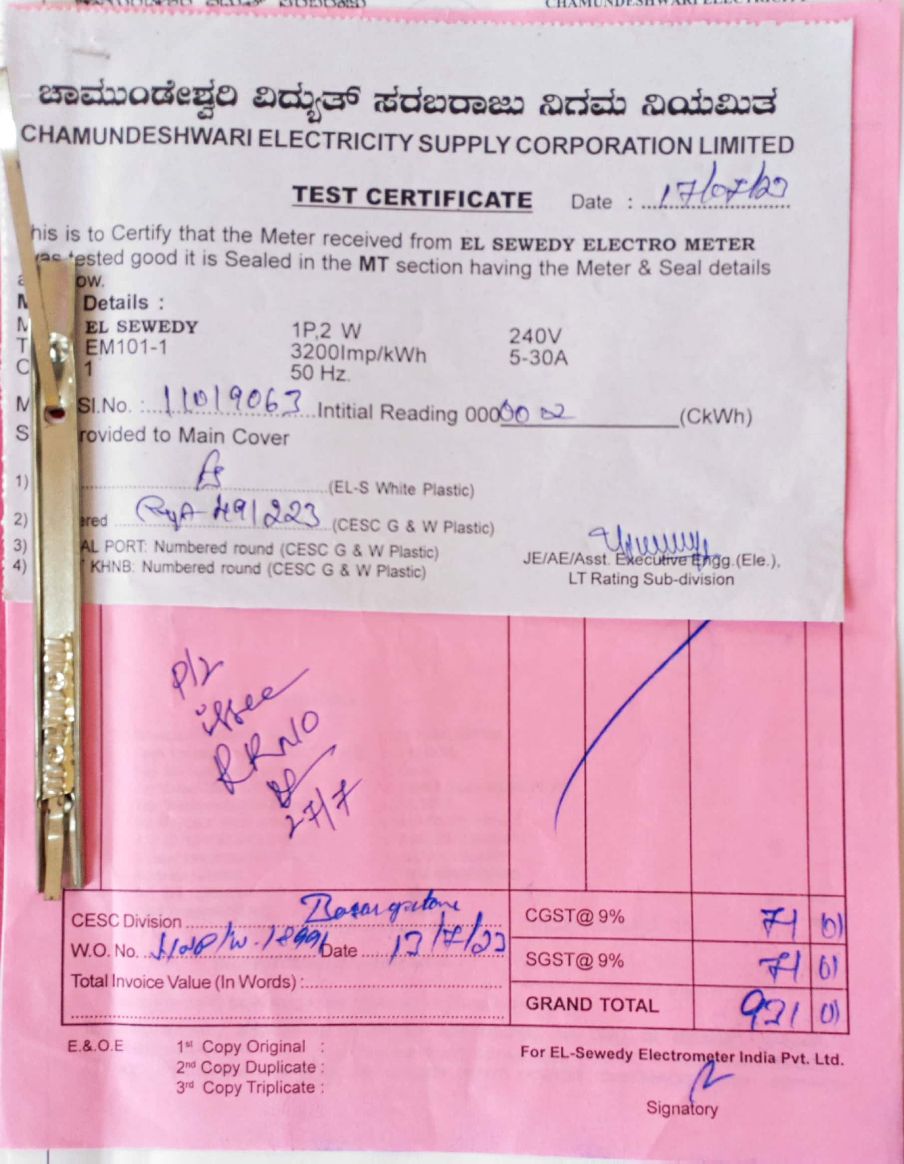 ಚಾಮುಂಡೇಶ್ವರಿ ವಿದ್ಯುತ್ ಸರಬರಾಜು ನಿಗಮ ನಿಯಮಿತ
CHAMUNDESHWARI ELECTRICITY SUPPLY CORPORATION LIMITED
TEST CERTIFICATE Date : 17/07/23
his is to Certify that the Meter received from EL SEWEDY ELECTRO METER
was tested good it is Sealed in the MT section having the Meter & Seal details
ow.
Details :
EL SEWEDY 1P,2 W 240V
EM101-1 3200Imp/kWh 5-30A
1 50 Hz.
Sl.No. : 11019063 Intitial Reading 000 00 02 (CkWh)
rovided to Main Cover
1) (EL-S White Plastic)
2) ered 491223 (CESC G & W Plastic)
3) AL PORT: Numbered round (CESC G & W Plastic)
4) KHNB: Numbered round (CESC G & W Plastic)
JE/AE/Asst. Executive Engg.(Ele.),
LT Rating Sub-division
P/2
issue
RRNO
27/7
CESC Division
W.O. No. Date 13/7/23
Total Invoice Value (In Words) :
CGST@ 9% 71 01
SGST@ 9% 71 01
GRAND TOTAL 931 01
E.& O.E 1st Copy Original :
2nd Copy Duplicate :
3rd Copy Triplicate :
For EL-Sewedy Electrometer India Pvt. Ltd.
Signatory